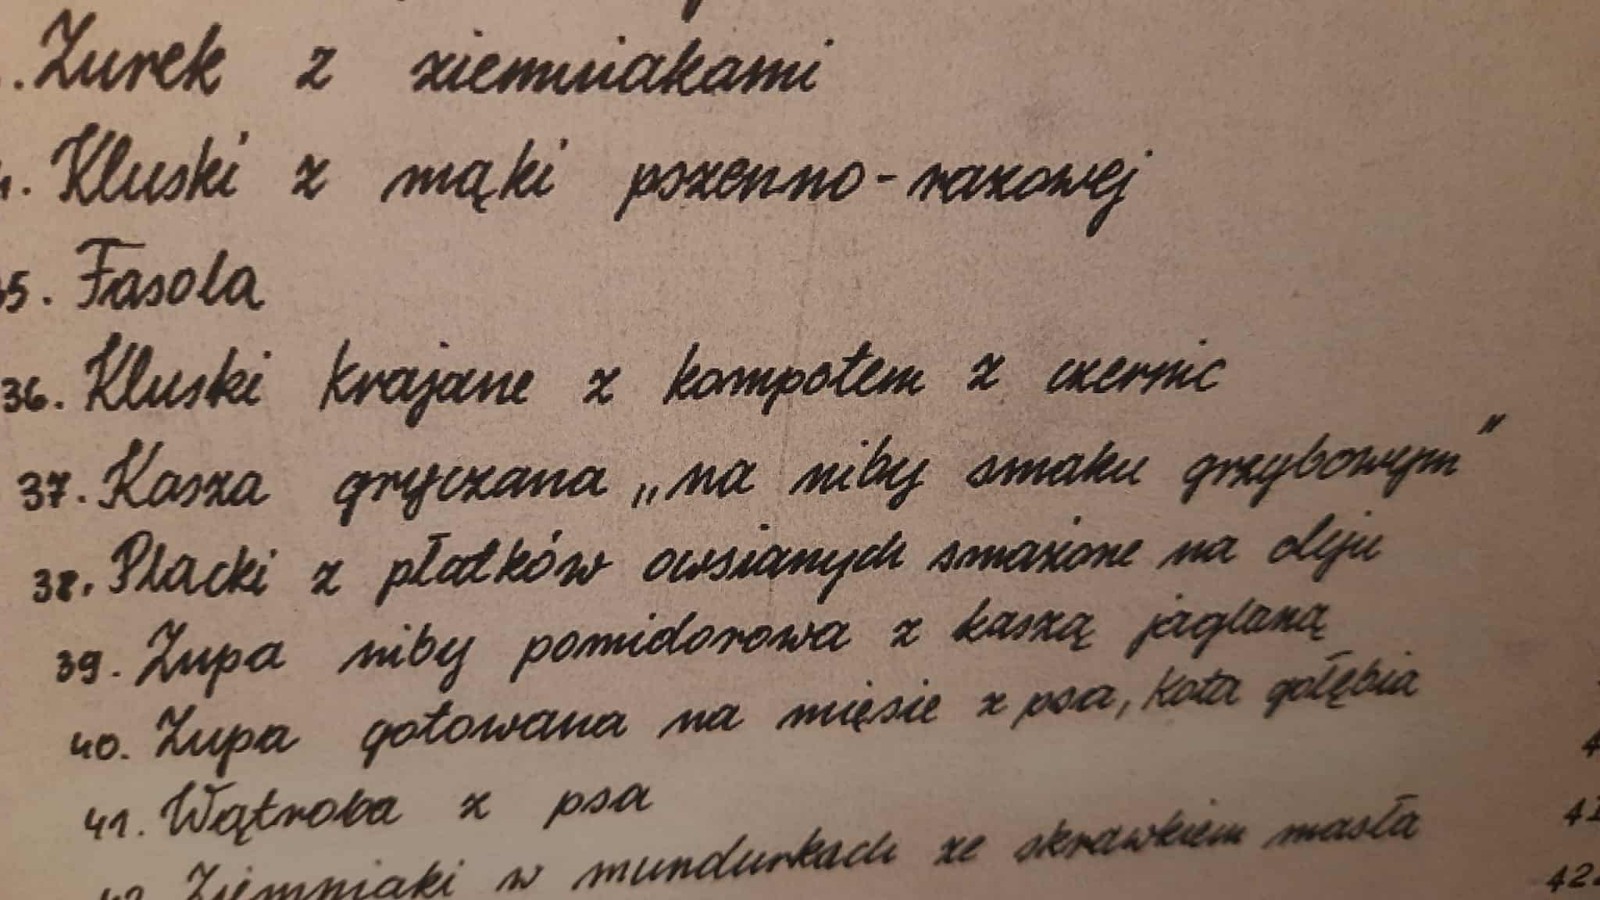 . Żurek z ziemniakami
. Kluski z mąki pszenno-razowej
5. Fasola
36. Kluski krajane z kompotem z czernic
37. Kasza gryczana „na niby smaku grzybowym"
38. Placki z płatków owsianych smażone na oleju
39. Zupa niby pomidorowa z kaszą jaglaną
40. Zupa gotowana na mięsie z psa, kota gołębia
41. Wątroba z psa
42. Ziemniaki w mundurkach ze skrawkiem masła
4
41
42.